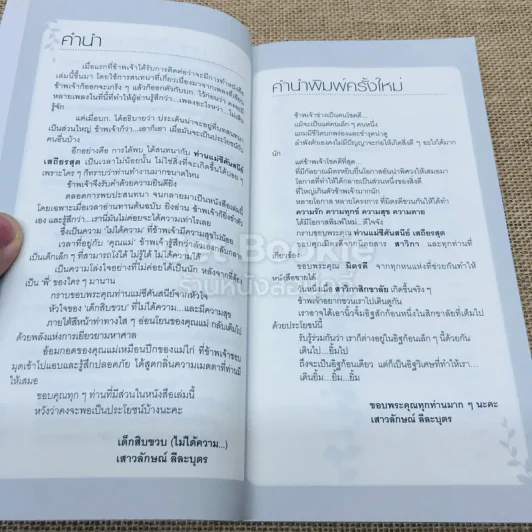 คำนำ
เมื่อแรกที่ข้าพเจ้าได้รับการติดต่อว่าจะมีการทำหนังสือ
เล่มนี้ขึ้นมา โดยใช้การสนทนาที่เกี่ยวเนื่องมาจากเพลงที่เขียน
ข้าพเจ้าก็ออกจะเกร็ง ๆ แล้วก็ออกตัวกับบก. ไว้ก่อนว่า คงจะมี
หลายเพลงในที่นี้ที่ทำให้ผู้อ่านรู้สึกว่า...เพลงอะไรหว่า...ไม่เห็น
รู้จัก
แต่เมื่อบก. ได้อธิบายว่า ประเด็นน่าจะอยู่ที่บทสนทนา
เป็นส่วนใหญ่ ข้าพเจ้าก็ว่า...เอาก็เอา เผื่อมันจะเป็นประโยชน์กับ
คนอื่นบ้าง
อีกอย่างคือ การได้พบ ได้สนทนากับ ท่านแม่ชีศันสนีย์
เสถียรสุต เป็นเวลาไม่น้อยนั้น ไม่ใช่สิ่งที่จะเกิดขึ้นได้บ่อย ๆ
เพราะใคร ๆ ก็ทราบว่าท่านทำงานมากขนาดไหน
ข้าพเจ้าจึงรับคำด้วยความยินดียิ่ง
ตลอดการพบปะสนทนา จนกลายมาเป็นหนังสือเล่มนี้
โดยเฉพาะเมื่อเวลาอ่านทวนต้นฉบับ ยิ่งอ่าน ข้าพเจ้าก็ยิ่งขำตัว
เอง และรู้สึกว่า...เรานี่มันไม่ค่อยจะได้ความเท่าไรเลย
ซึ่งเป็นความ 'ไม่ได้ความ' ที่ข้าพเจ้ามีความสุขไม่น้อย
เวลาที่อยู่กับ 'คุณแม่' ข้าพเจ้ารู้สึกว่าตัวเองกลับกลาย
เป็นเด็กเล็ก ๆ ที่สามารถงอแงได้ ไม่รู้ได้ ไม่ได้ความได้
เป็นความโล่งใจอย่างที่ไม่ค่อยได้เป็นนัก หลังจากที่ต้อง
เป็น 'พี่' ของใคร ๆ มานาน
กราบขอบพระคุณท่านแม่ชีศันสนีย์จากหัวใจ
หัวใจของ 'เด็กสิบขวบ' ที่ไม่ได้ความ...และมีความสุข
ภายใต้สีหน้าท่าทางใส ๆ อ่อนโยนของคุณแม่ กลับเต็มไป
ด้วยพลังแห่งการเยียวยามหาศาล
อ้อมกอดของคุณแม่เหมือนปีกของแม่ไก่ ที่ข้าพเจ้าชอบ
มุดเข้าไปแอบและรู้สึกปลอดภัย ได้สูดกลิ่นความเมตตาที่ท่านมี
ให้เสมอ
ขอบคุณทุก ๆ ท่านที่มีส่วนในหนังสือเล่มนี้
หวังว่าคงจะพอเป็นประโยชน์บ้างนะคะ
เด็กสิบขวบ (ไม่ได้ความ...)
เสาวลักษณ์ ลีละบุตร
คำนำพิมพ์ครั้งใหม่
ข้าพเจ้าช่างเป็นคนโชคดี...
แม้จะเป็นแค่คนเล็ก ๆ คนหนึ่ง
แถมมีชีวิตบกพร่องและขำรุดน่าดู
ลำพังตัวเองคงไม่มีปัญญาจะก่อให้เกิดสิ่งดี ๆ อะไรได้มาก
นัก
แต่ข้าพเจ้าโชคดีที่สุด...
ที่มีกัลยาณมิตรหยิบยื่นโอกาสอันน่าพิศวงให้เสมอมา
โอกาสที่ทำให้ได้กลายเป็นส่วนหนึ่งของสิ่งดี
ที่ใหญ่เกินตัวข้าพเจ้ามากนัก
หลายโอกาส หลายโครงการ ที่มิตรดีชวนกันให้ได้ทำ
ความรัก ความทุกข์ ความสุข ความตาย
ได้มีโอกาสพิมพ์ใหม่...ดีใจจัง
กราบขอบพระคุณ ท่านแม่ชีศันสนีย์ เสถียรสุต
ขอบคุณมิตรดีจากนิตยสาร สาวิกา และทุกท่านที่
เกี่ยวข้อง
ขอบพระคุณ มิตรดี จากทุกหนแห่งที่ช่วยกันทำให้
หนังสือขายได้
วันหนึ่งเมื่อ สาวิกาสิกขาลัย เกิดขึ้นจริง ๆ
ข้าพเจ้าอยากชวนเราไปเดินดูกัน
เราอาจได้เอานิ้วจิ้มอิฐสักก้อนหนึ่งในสิกขาลัยที่เต็มไป
ด้วยประโยชน์นี้
รับรู้ร่วมกันว่า เราก็ต่างอยู่ในอิฐก้อนเล็ก ๆ นี้ด้วยกัน
เดินไป...ยิ้มไป
ถึงจะเป็นอิฐก้อนเดียว แต่ก็เป็นอิฐวิเศษที่ทำให้เรา...
เดินยิ้ม...ยิ้ม...ยิ้ม
ขอบพระคุณทุกท่านมาก ๆ นะคะ
เสาวลักษณ์ ลีละบุตร